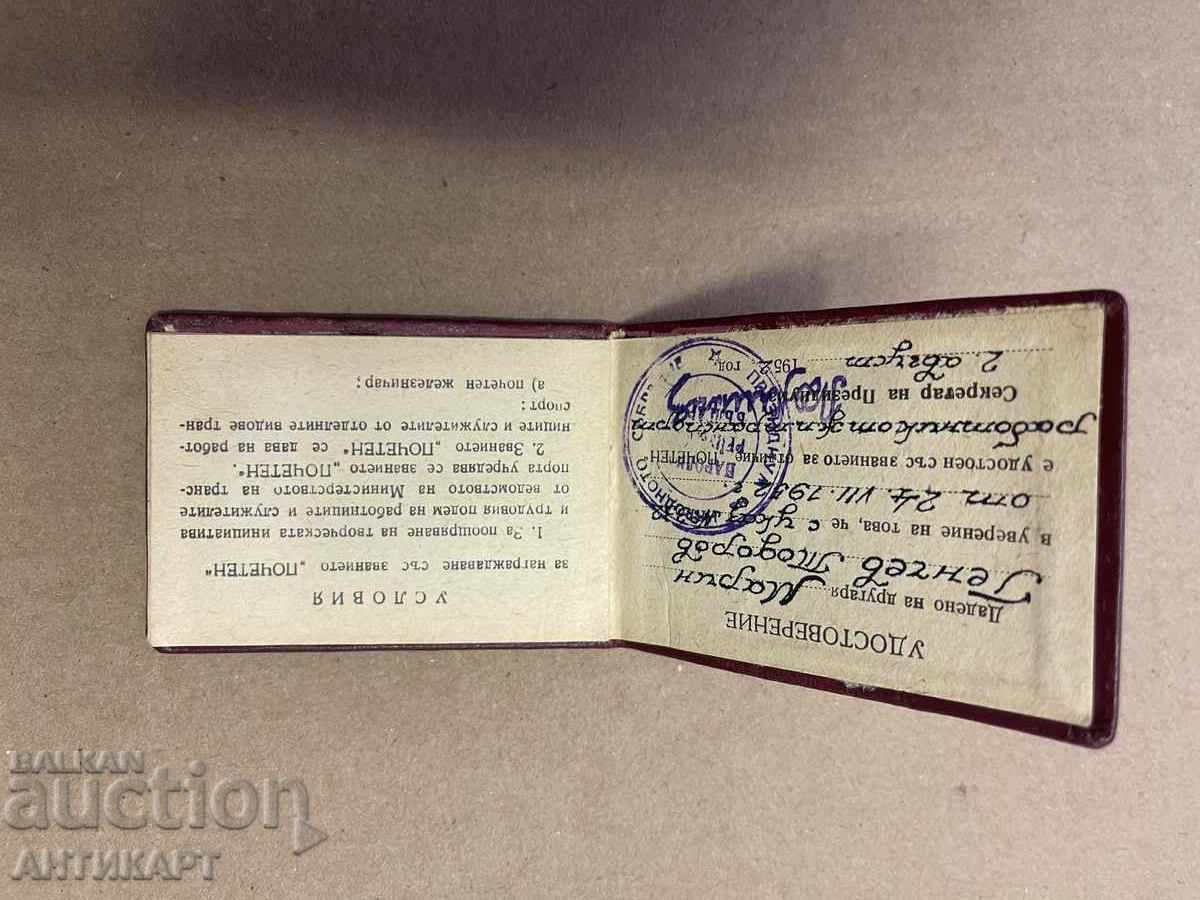 УДОСТОВЕРЕНИЕ
Дадено на другаря Марин
Генчев Тодоров
в уверение на това, че с указ
от 24. VII. 1952 г.
е удостоен със званието за отличие „ПОЧЕТЕН
работник от ж.п. транспорта
Секретар на Президиума:
2. август 1952 год.
УСЛОВИЯ
за награждаване със званието „ПОЧЕТЕН“
1. За поощряване на творческата инициатива
и трудовия подем на работниците и служителите
от ведомството на Министерството на транс-
порта учредява се званието „ПОЧЕТЕН“.
2. Званието „ПОЧЕТЕН“ се дава на работ-
ниците и служителите от отделните видове тран-
спорт:
а) почетен железничар;
BALKAN
auction
АНТИКАРТ